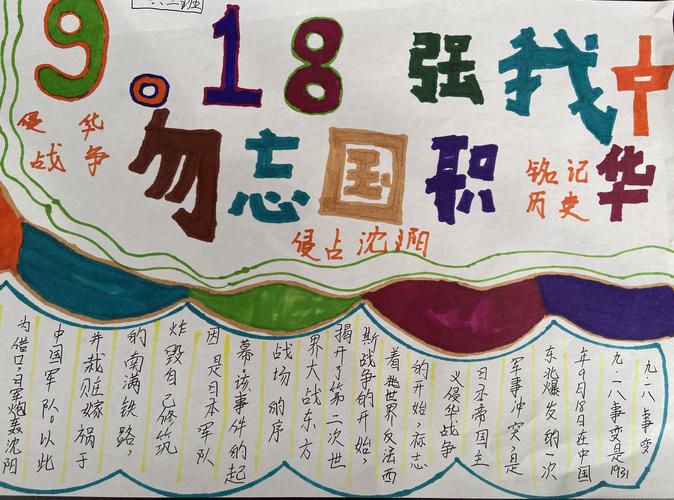 六二班
9.18 强我中
侵华
战争
勿忘国职
铭记
历史
华
侵占沈阳
九.一八事变
九.一八事变是1931
年9月18日在中国
东北爆发的一次
军事冲突,是
日本帝国主
义侵华战争
的开始,标志
着世界反法西
斯战争的开始,
揭开了第二次世
界大战东方
战场的序
幕.该事件的起
因是日本军队
炸毁自己修筑
的南满铁路,
并栽赃嫁祸于
中国军队。以此
为借口,日军炮轰沈阳